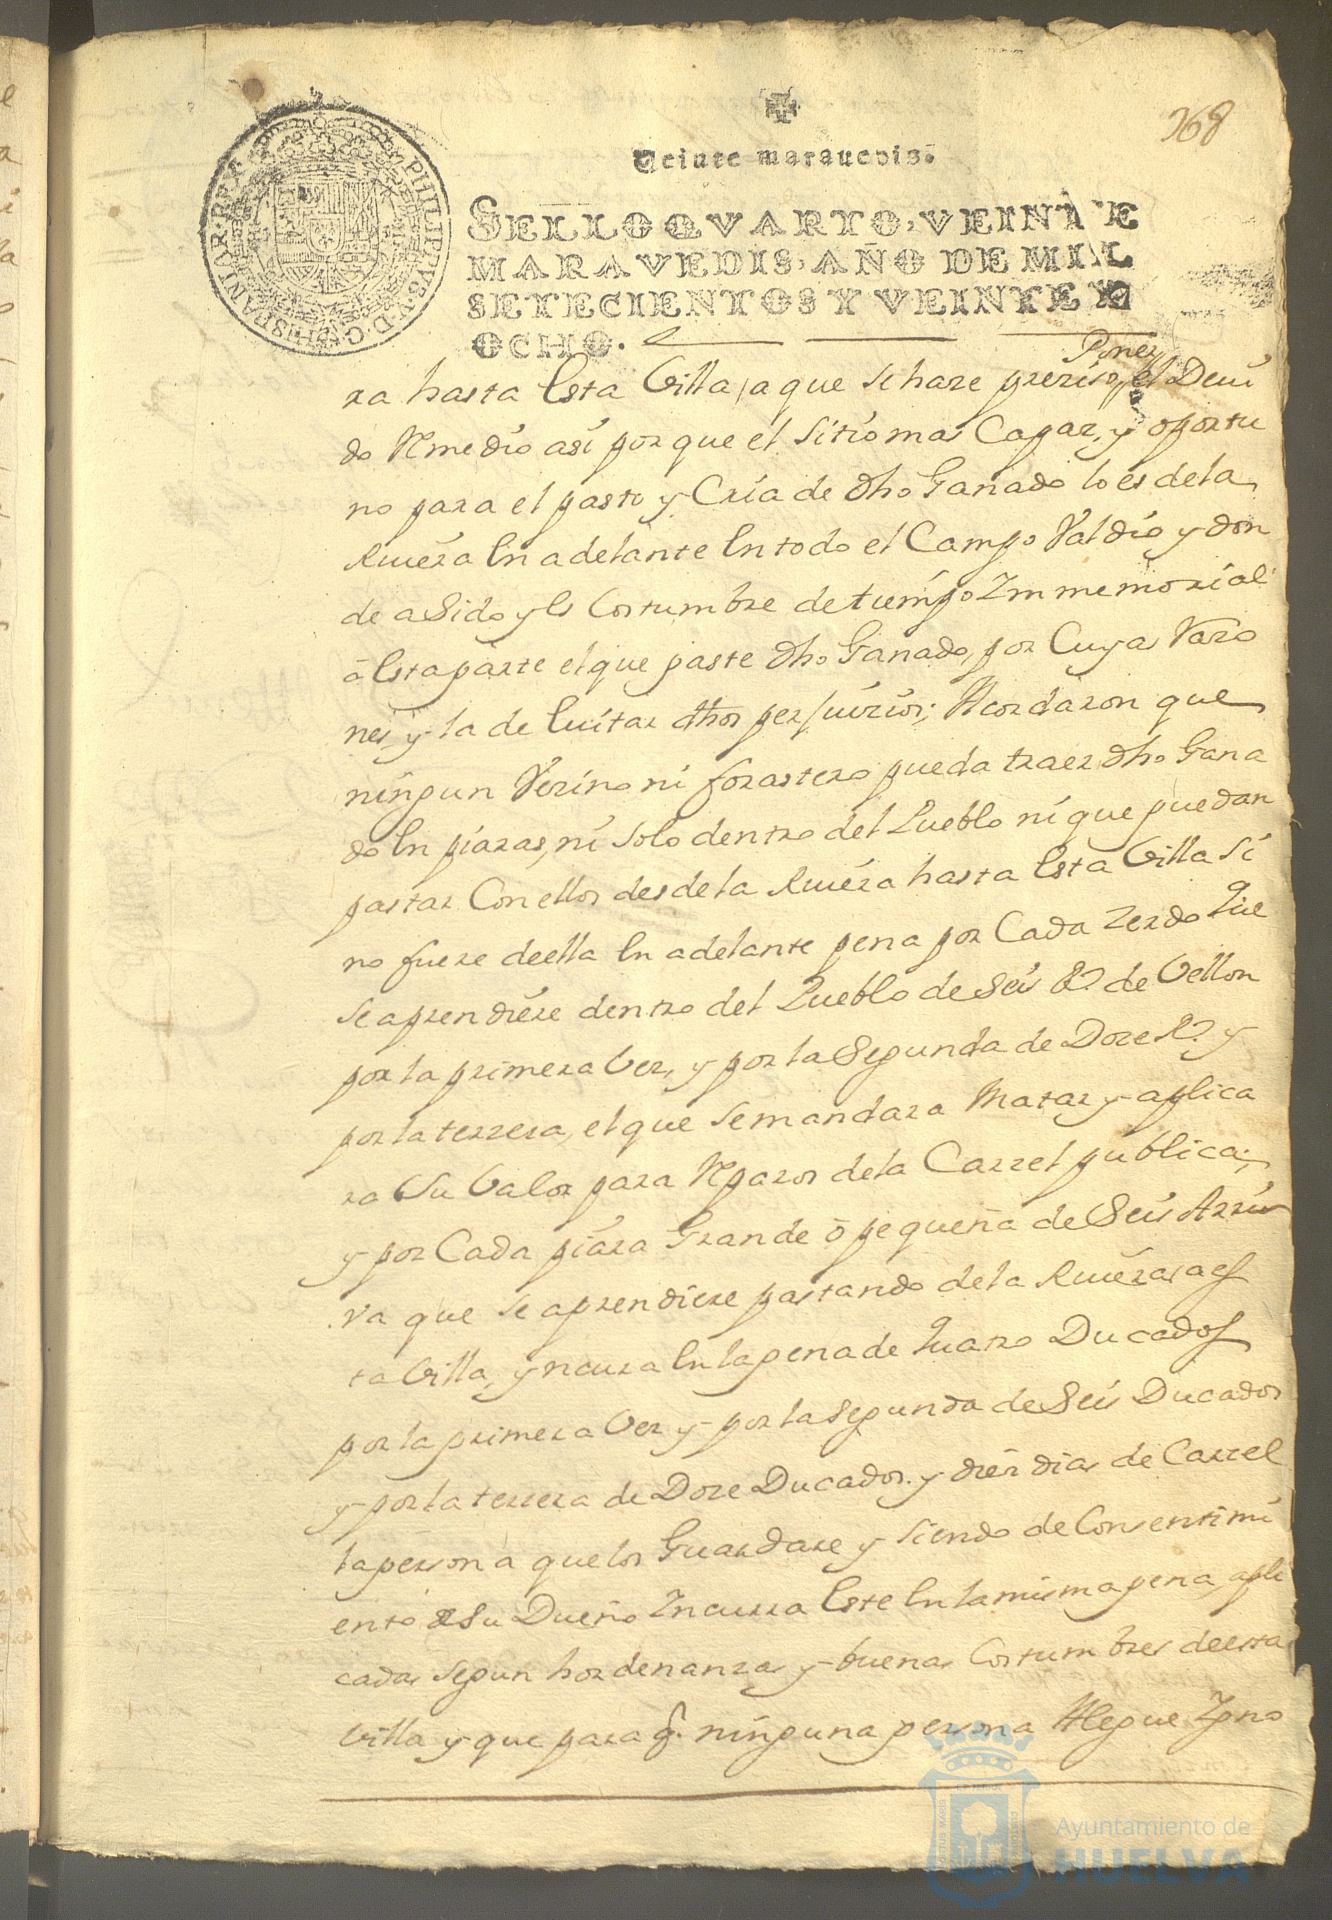 368
Veinte marauedis.
SELLO QVARTO, VEINTE
MARAVEDIS, AÑO DE MIL
SETECIENTOS Y VEINTE Y
OCHO.
PHILIPPVS V D G HISPANIAR REX
Poner
ra hasta Esta Villa, a que se haze prezisso, el Deui
do Remedio asi por que el sitio mas Capaz, y oportu
no para el pasto y Cria de dho Ganado lo es de la
Riuera En adelante En todo el Campo Valdio y don
de a Sido y Es Costumbre de tiempo Immemorial
â Esta parte el que paste dho Ganado, por Cuyas Razo
nes, y la de Euitar dhos perjuizios; Acordaron que
ningun Vezino ni forastero pueda traer dho Gana
do En piaras, ni solo dentro del Pueblo ni que puedan
pastar Con ellos desde la Riuera hasta Esta Villa si
no fuere de ella En adelante pena por Cada Zerdo Que
se aprendiere dentro del Pueblo de Seis Rs de Vellon
por la primera Vez, y por la Segunda de Doze Rs y
por la terzera, el que se mandara Matar y aplica
ra Su Valor para Reparos de la Carzel publica;
y por Cada piara Grande ô pequeña de Seis Arriu
va que se aprendiere pastando de la Riuera a es
ta Villa, yncurra En la pena de Quatro Ducados
por la primera Vez y por la Segunda de Seis Ducados
y por la terzera de Doze Ducados y diez dias de Carzel
la persona que los Guardare y siendo de Consentimi
ento de Su Dueño Incurra Este En la misma pena, apli
cadas segun hordenanzas y buenas Costumbres de esta
Villa y que para q. ninguna persona Alegue Ygno
Ayuntamiento de
HUELVA